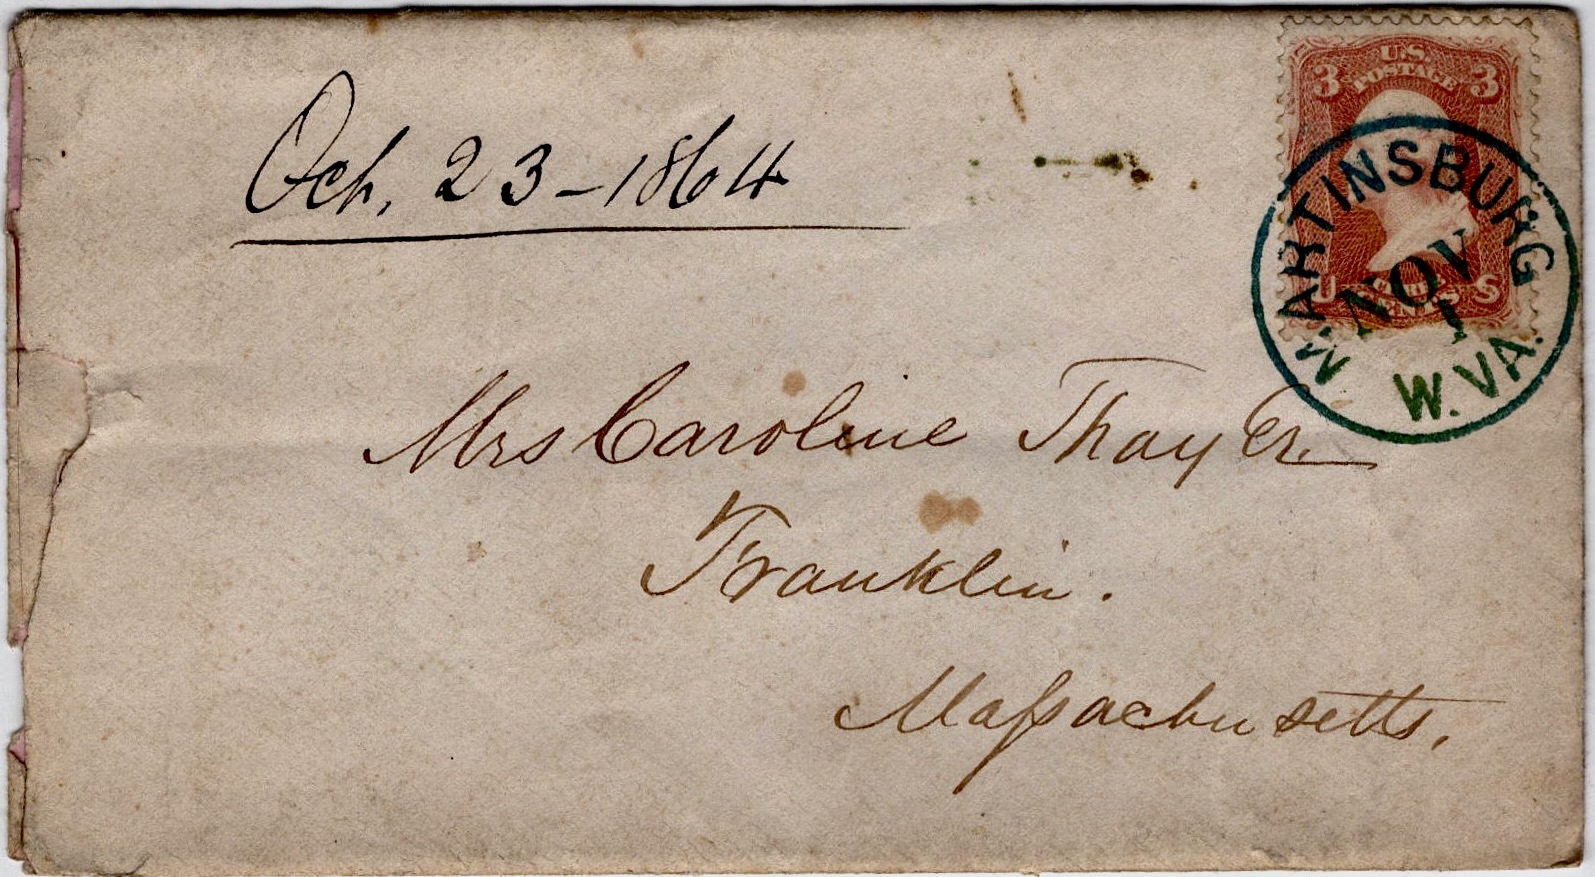 U.S.
POSTAGE
3 3
Oct. 23-1864
MARTINSBURG
NOV
1
W. VA.
U S
Mrs Caroline Thayer.
Franklin.
Massachusetts.